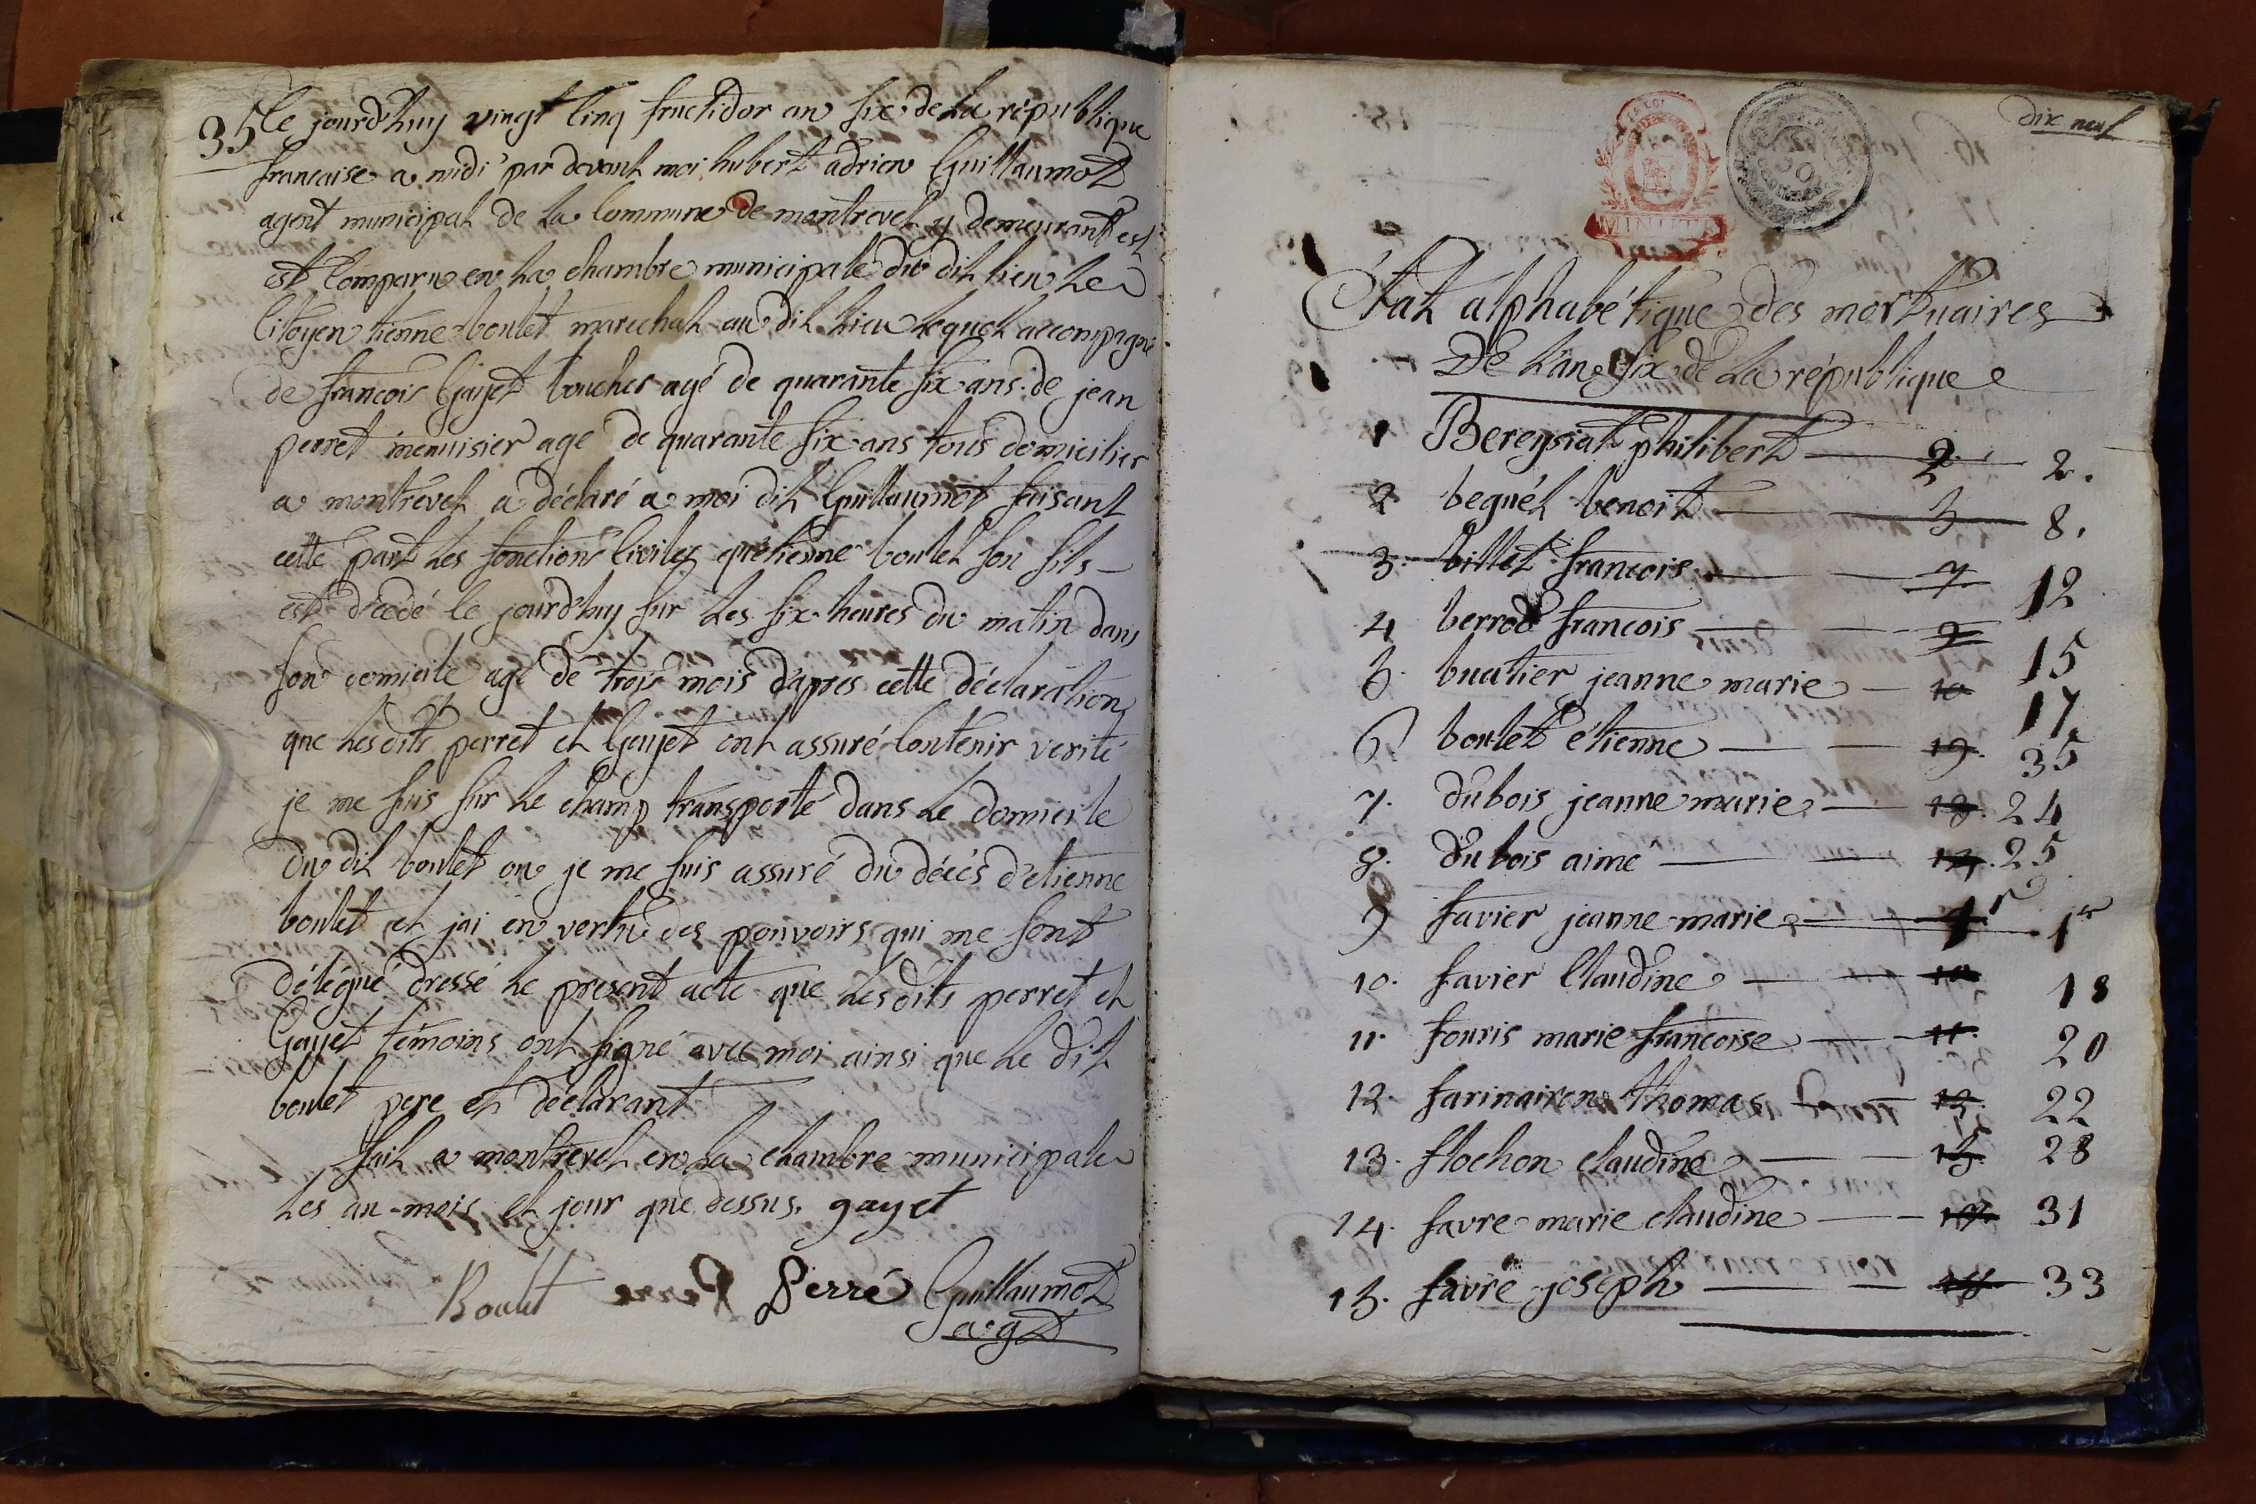 35 Le jourd'huy vingt cinq fructidor an six de la république
francaise a midi par devant moi hubert adrien Guillaumot
agent municipal de la commune de montrevel y demeurant est
est comparu en la chambre municipale du dit lieu le
citoyen tienne boulet marechal au dit lieu lequel accompagné
de francois Gayet boucher agé de quarante six ans de jean
perret menuisier age de quarante six ans tous domicilies
a montrevel a déclaré a moi dit Guillaumot faisant
cette part les fonctions civiles qu'etienne boulet son fils
est décédé le jourd'huy sur les six heures du matin dans
son domicile agé de trois mois d'apres cette déclaration
que lesdits perret et Gayet ont assuré contenir verité
je me suis sur le champ transporté dans le domicile
du dit boulet ou je me suis assuré du décés d'etienne
boulet et jai en vertu des pouvoirs qui me sont
délégué dressé le present acte que lesdits perret et
Gayet témoins ont signé avec moi ainsi que le dit
boulet pere et déclarant
fait a montrevel en la chambre municipale
les an mois et jour que dessus. gayet
Boulet Perré Guillaumot
agt
dix neuf
LA LOI
MINUTE
État alphabétique des mortuaires
De l'an six de la république
1 Bereysiat philibert 2 2.
2 beguét benoit 5 8.
3. billet francois 7 12
4 berrod francois 9 15
5. buatier jeanne marie 10 17
6 boulet étienne 19. 35
7. dubois jeanne marie 13. 24
8. dubois aimé 14. 25
9 favier jeanne marie 1r 1er
10. favier Claudine 10 18
11. fouris marie francoise 11. 20
12. farinairene thomas 12. 22
13. flochon claudine 15. 28
14. favre marie claudine 17. 31
15. favre joseph 18 33